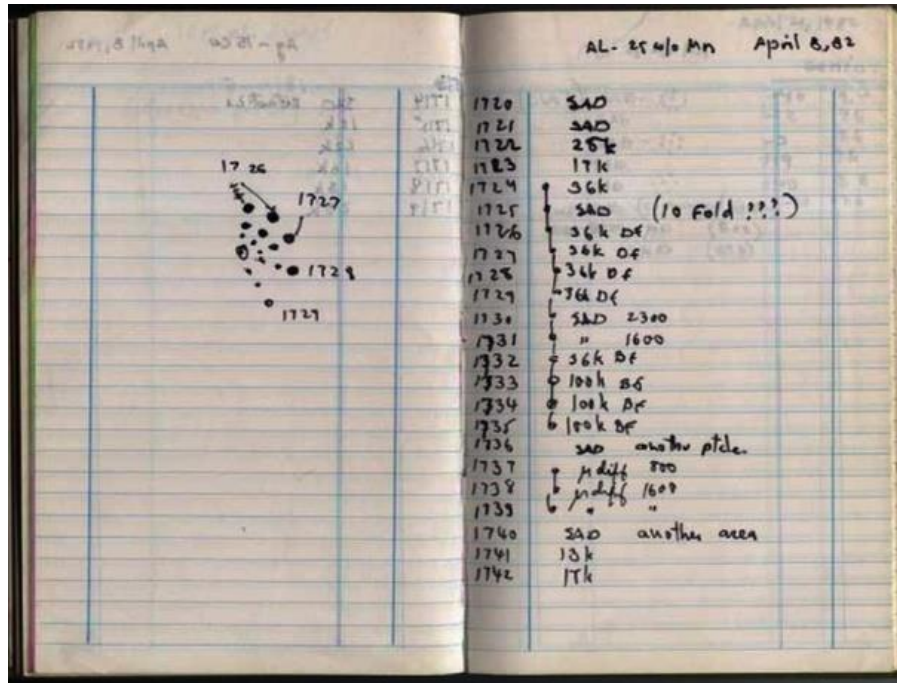 1726
1727
1728
1729
AL- 25 w/o Mn April 8, 82
1720 SAD
1721 SAD
1722 25k
1723 17k
1724 36k
1725 SAD (10 Fold ???)
1726 36k DF
1727 36k DF
1728 36k DF
1729 36k DF
1730 SAD 2300
1731 " 1600
1732 36k BF
1733 100k BF
1734 100k DF
1735 100k DF
1736 SAD another ptcle.
1737 μdiff 800
1738 μdiff 1600
1739 " "
1740 SAD another area
1741 13k
1742 17k